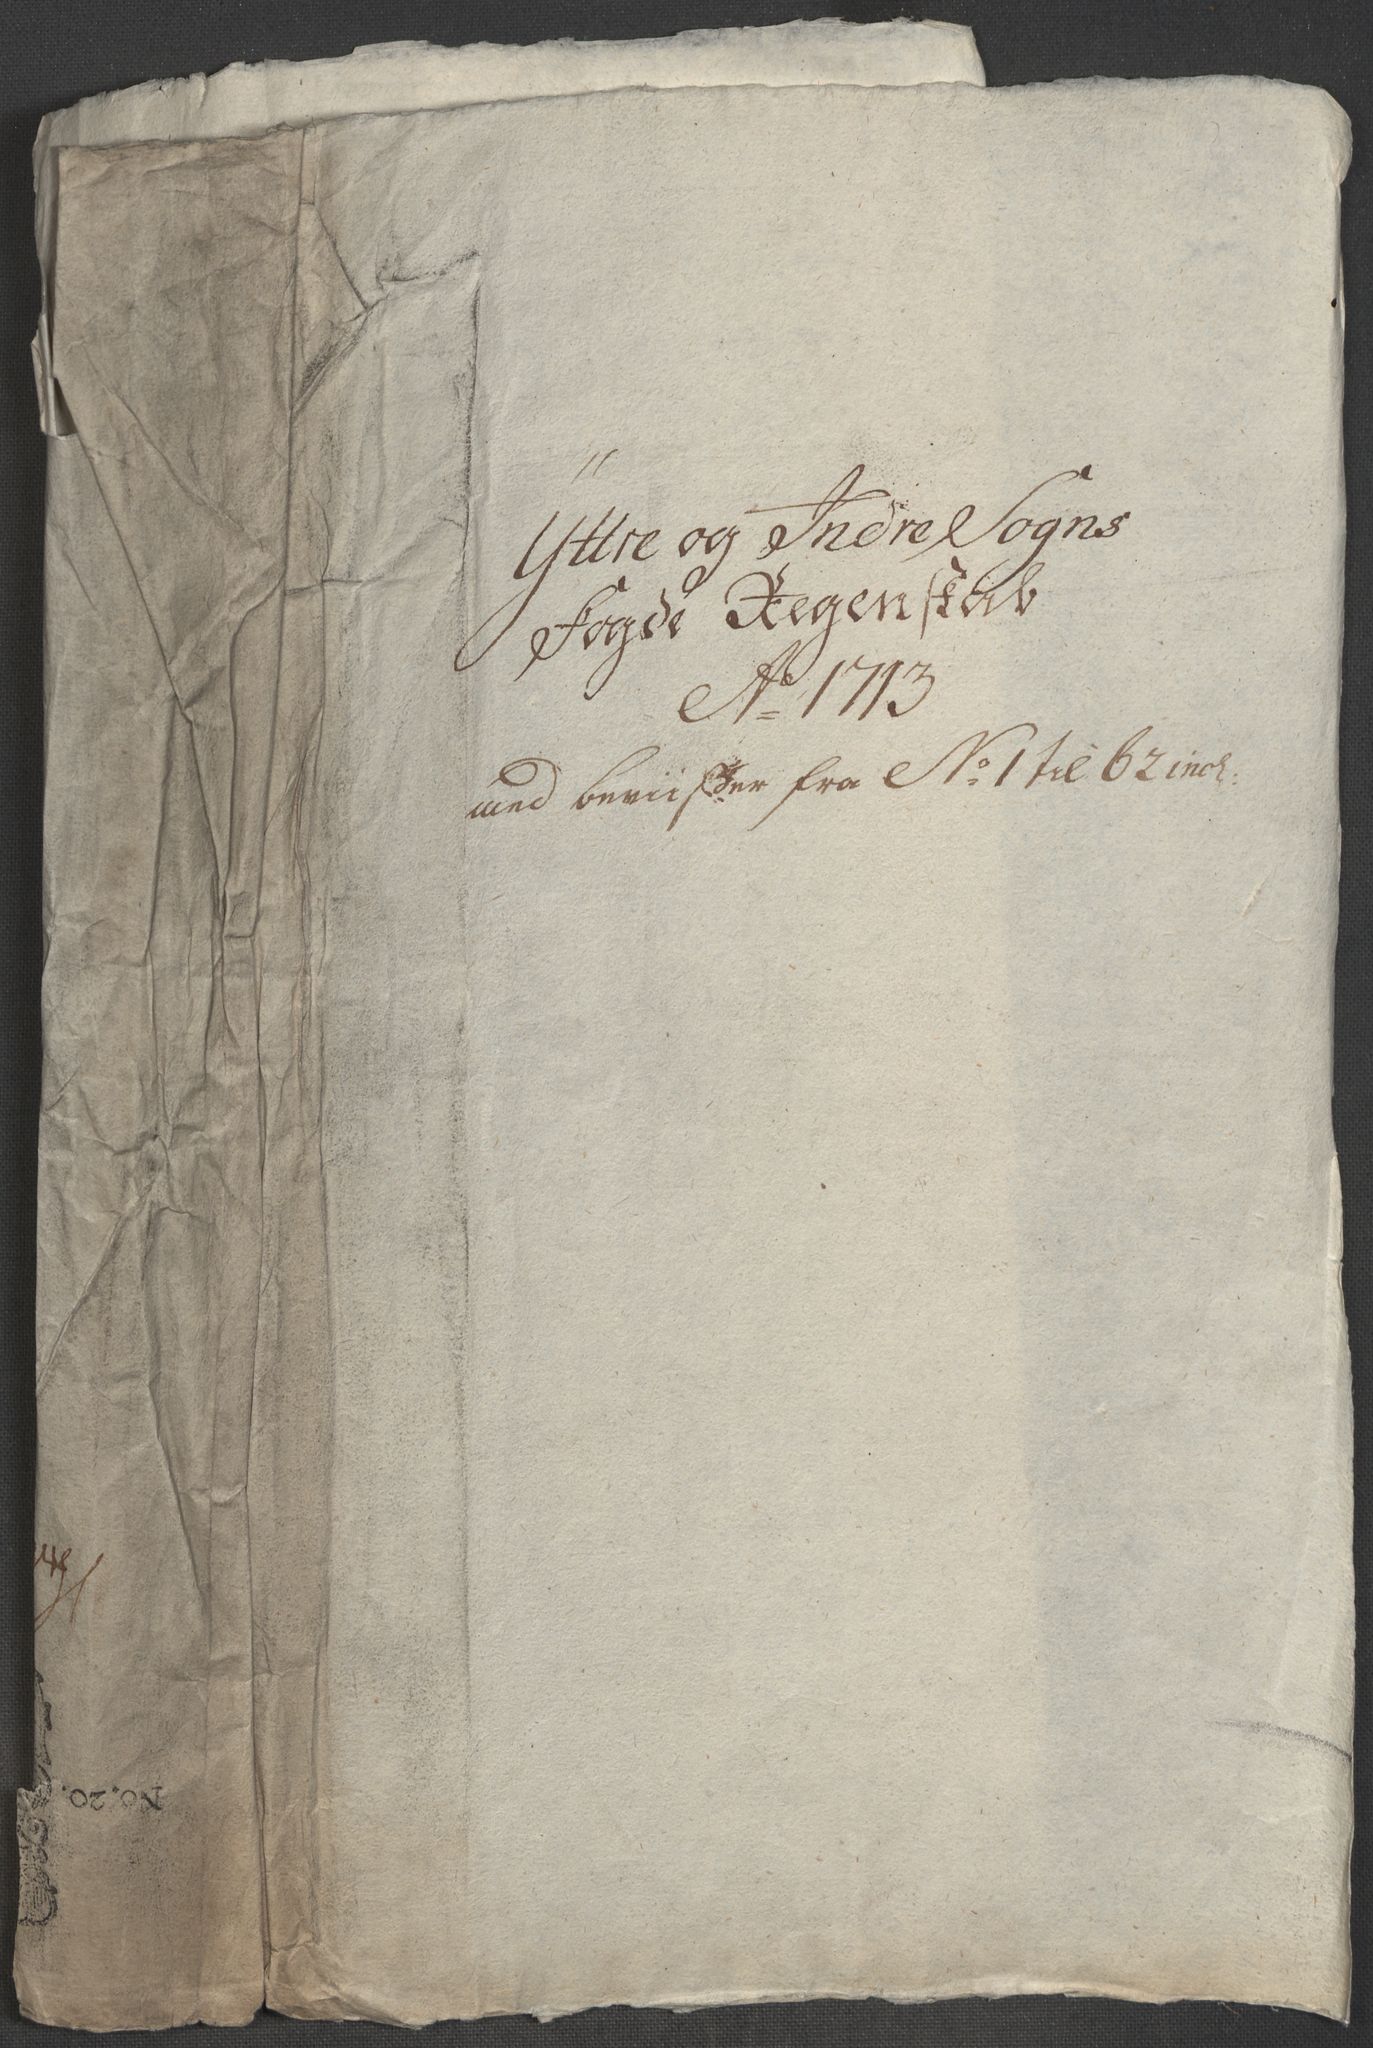 Ÿttre og Indre Sogns
Fogde Regenskab
Ao 1713
med beviister fra No 1 til 62 incl.
No. 20.